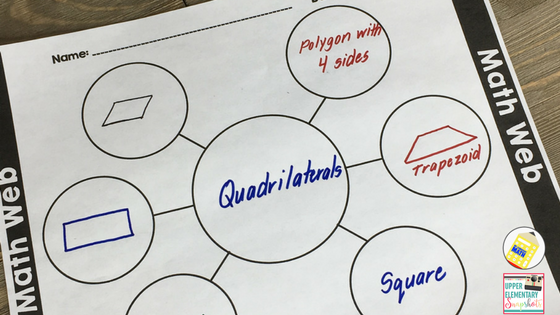 Name:
Polygon with
4 sides
Math Web
Trapezoid
Quadrilaterals
Math Web
Square
UPPER
ELEMENTARY
Snapshots